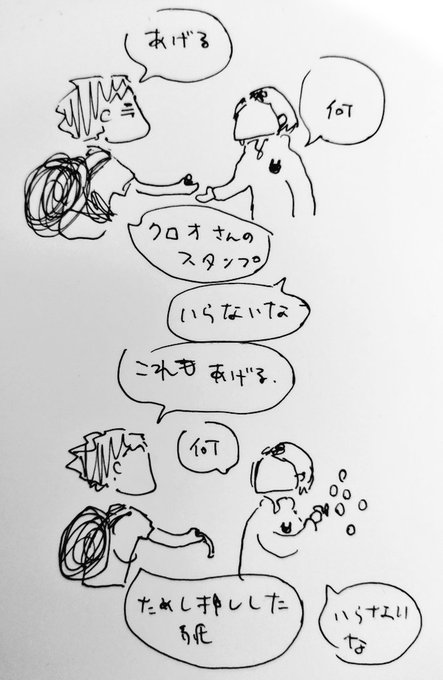 あげる
何
クロオさんの
スタンプ
いらないな
これもあげる.
何
ためし押しした
紙
いらない
な